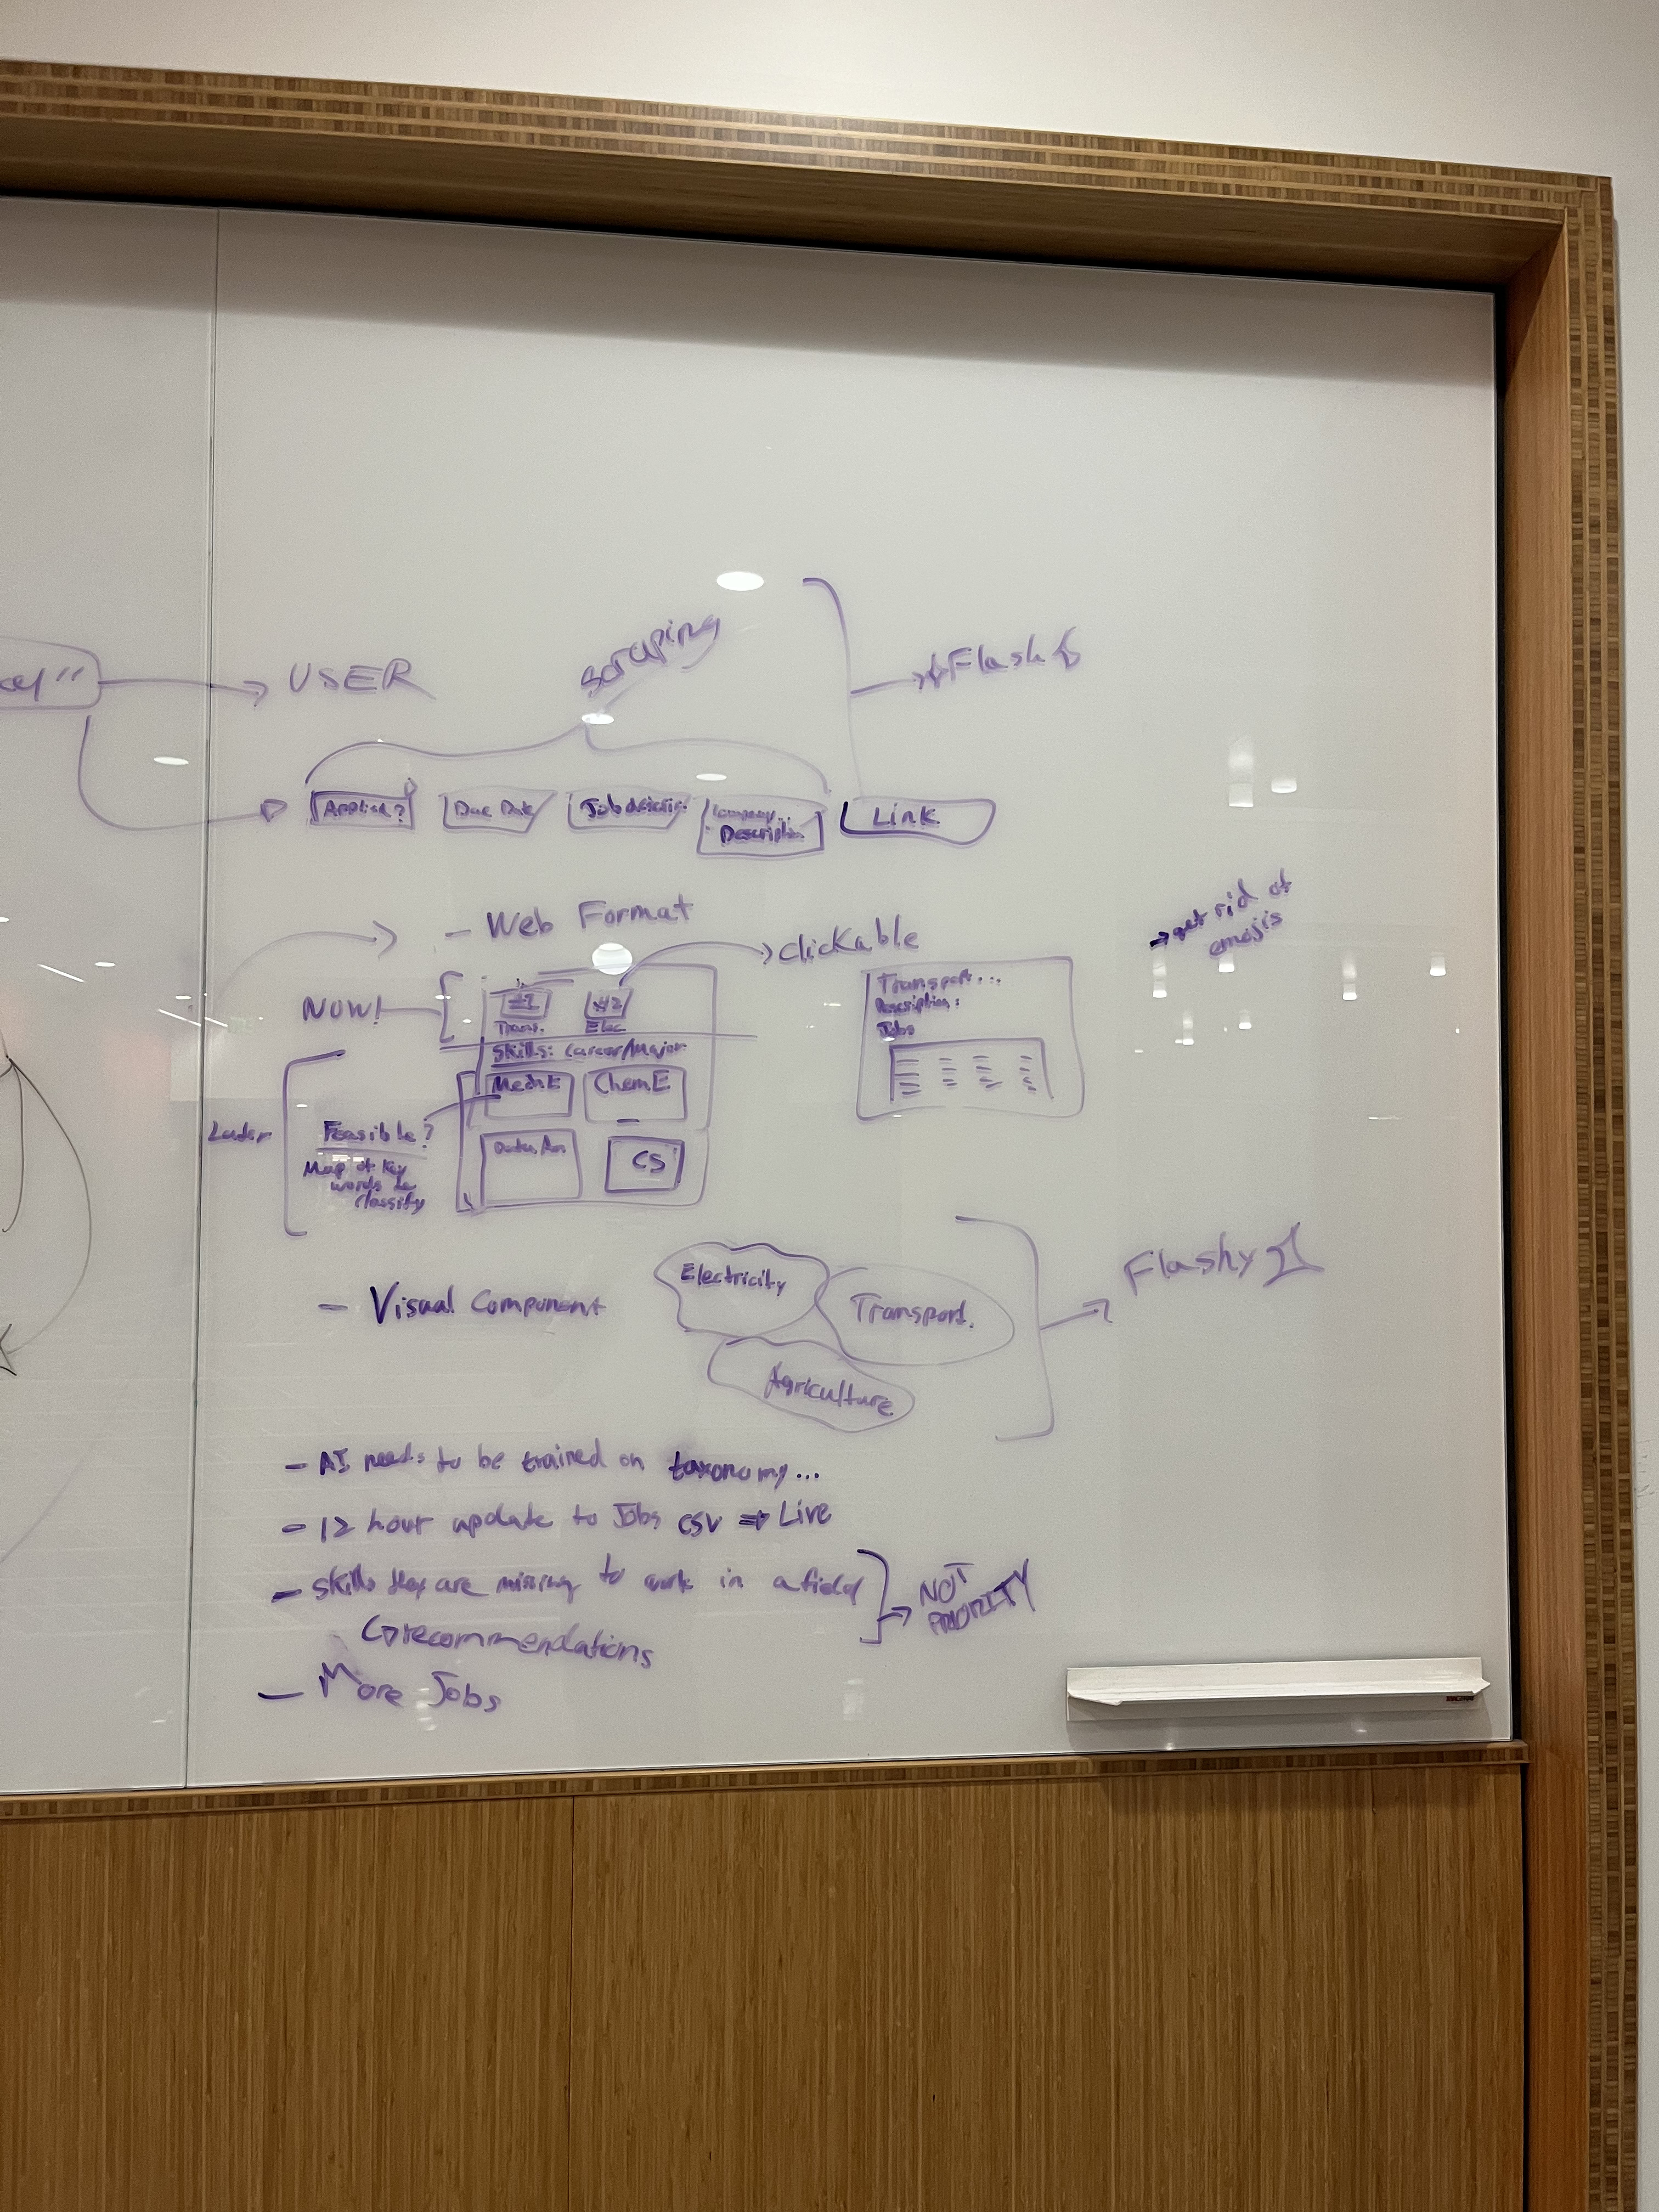 USER
scraping
Flash
Applied?
Due Date
Job descrip.
Company...
Description
Link
- Web Format
clickable
→ get rid of
emojis
NOW!
#1
#2
Trans.
Elec
Skills: Career/Major
MechE
ChemE
Data An
CS
Transport...
Description:
Jobs
Later
Feasible?
Map of key
words to
classify
- Visual Component
Electricity
Transport.
Agriculture
Flashy
- AI needs to be trained on taxonomy...
- 12 hour update to Jobs csv ⇒ Live
- Skills they are missing to work in a field
recommendations
NOT
PRIORITY
- More Jobs